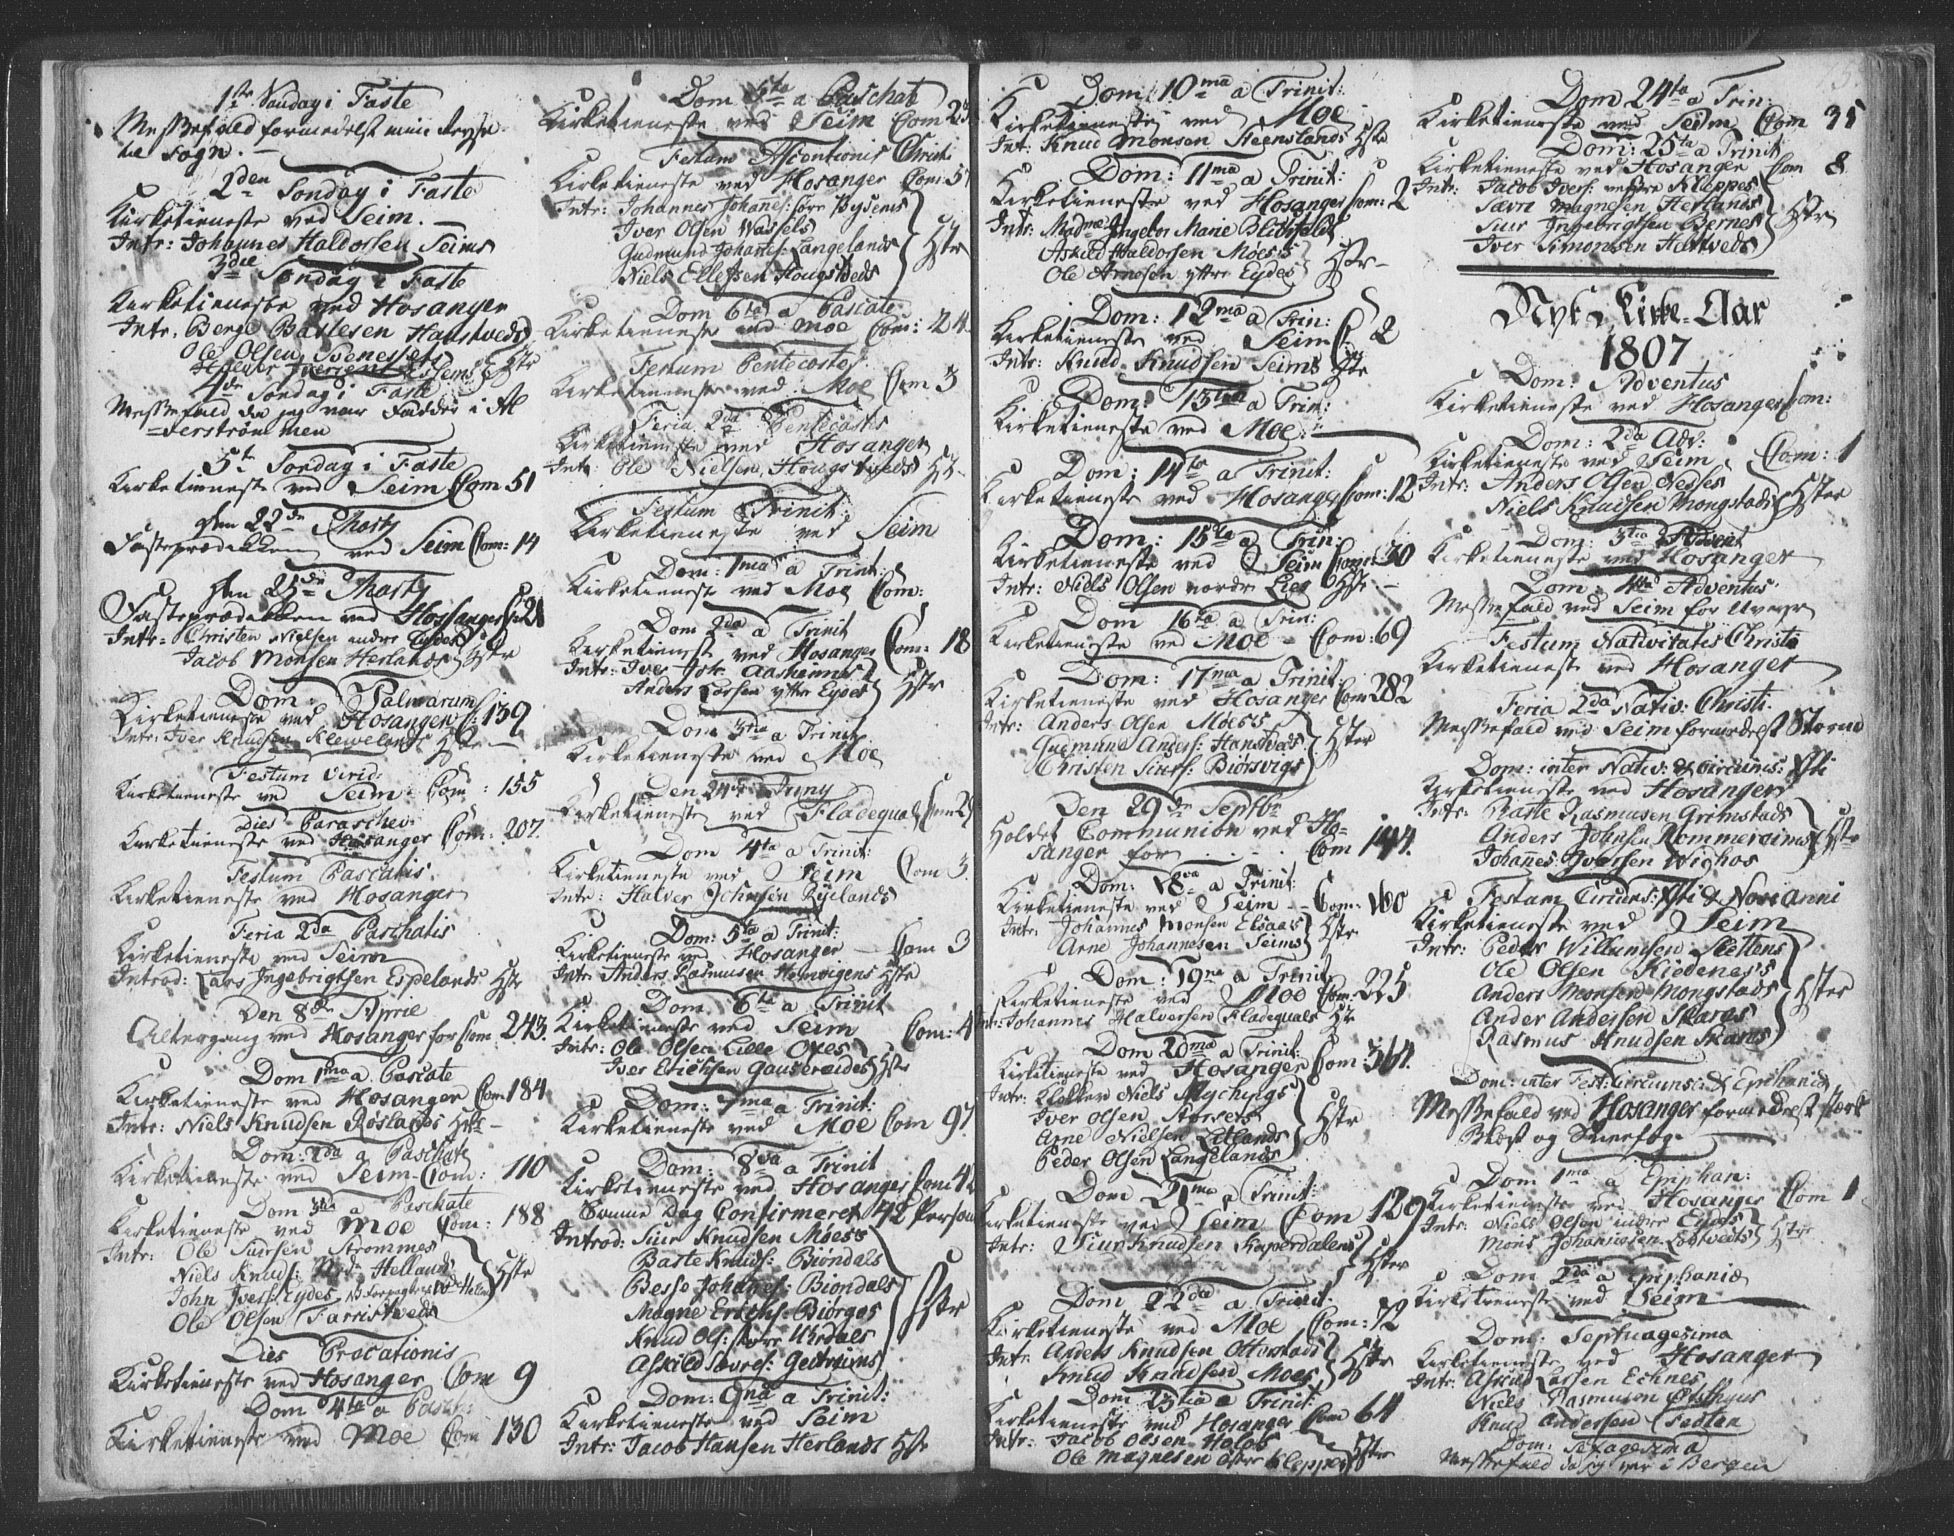 1ste Søndag i Faste
Messefald formedelst min Reyse
til Sogn. —
2den Søndag i Faste
Kirketieneste ved Seim. —
Intr: Johannes Haldorsen Seims
3die Søndag i Faste
Kirketieneste ved Hosanger
Intr. Berge Baltesen Hanstveds
Ole Olsen
Hstr
4de Søndag i Faste
Messefald da jeg var Fadder i Al
verstrømmen
5te Søndag i Faste
Kirketieneste ved Seim Com 51
Den 22de Marty
Fasteprædikken ved Seim Com: 14
Den 25de Marty
Fasteprædikken ved Hossanger C: 21
Intr: Christen Nielsen indre Eydes
Jacob Monsen Herlands Hstr
Dom: Palmarum
Kirketieneste ved Hosanger C: 139
Intr: Iver Knudsen Klevelands Hstr —
Festum Virid:
Kirketieneste ved Seim Com: 155
Dies Paraschev:
Kirketieneste ved Hosanger Com: 207.
Festum Pascatis.
Kirketieneste ved Hosanger
Feria 2da Paschatis
Kirketieneste ved Seim
Introd: Lars Ingebrigtsen Espelands Hstr
Den 8de Aprile
Altergang ved Hosanger for Com. 243.
Dom 1ma a Pascate
Kirketieneste ved Hosanger Com: 184
Intr: Niels Knudsen Røslands Hstr —
Dom: 2da a Paschate
Kirketieneste ved Seim Com: 110
Dom 3tia a Paschate
Kirketieneste ved Moe Com: 188
Intr: Ole Siursen Strømmes
Niels Knuds: Ned: Hellands
John Ivers: Eydes
Ole Olsen Farristveds
Hstr
Dies Precationis
Kirketieneste ved Hosanger Com 9
Dom 4ta a Pasch:
Kirketieneste ved Moe Com 130
Dom 5ta a Paschate
Kirketieneste ved Seim Com 23
Festum Ascentionis Christi
Kirketieneste ved Hosanger Com: 57
Intr: Johannes Johanes: Byseims
Iver Olsen Wassels
Gudmund Johanes: Langelands
Niels Ellefsen Hougstveds
Hstr
Dom 6ta a Pascate
Kirketieneste ved Moe Com: 24.
Festum Pentecostes
Kirketieneste ved Moe Com 3
Feria 2da Pentecostes
Kirketieneste ved Hosanger
Intr: Ole Nielsen Hougstveds Hstr
Festum Trinit:
Kirketieneste ved Seim
Dom: 1ma a Trinit:
Kirketieneste ved Moe Com:
Dom 2da a Trinit
Kirketieneste ved Hosanger Com: 18
Intr: Iver Joh: Aasheims
Anders Larsen yttre Eydes Hstr
Dom 3tia a Trinit.
Kirketieneste ved Moe
Den 24de Juny
Kirketieneste ved Fladequal Com 29
Dom 4ta a Trinit:
Kirketieneste ved Seim Com 3.
Intr: Halver Johnsen Ryelands
Dom: 5ta a Trinit:
Kirketieneste ved Hosanger — Com 3
Intr: Anders Rasmusen Hopsvigens Hstr
Dom 6ta a Trinit
Kirketieneste ved Seim Com: 4
Intr: Ole Olsen Lille Oxes
Iver Erichsen Gauseraides Hstr
Dom: 7ma a Trinit:
Kirketieneste ved Moe Com 97.
Dom: 8va a Trinit
Kirketieneste ved Hosanger Com 42
Samme Dag Confirmeret 42 Person
Introd: Siur Knudsen Møess
Baste Knuds: Biøndals
Besse Johanes: Biøndals
Magne Erichs: Biørgos
Knud Ols: store Urdals
Askild Sovres: Geitriims
Hstr
Dom: 9na a Trinit:
Kirketieneste ved Seim
Intr: Jacob Hansen Herlands Hstr
Dom: 10ma a Trinit:
Kirketieneste ved Moe
Int: Knud Monsen Steenslands Hstr
Dom: 11ma a Trinit:
Kirketieneste ved Hosanger Com: 2
Intr: Madme Ingebor Marie Blichfeldt
Askild Haldorsen Møess
Ole Arnesen yttre Eydes Hstr —
Dom: 12ma a Trin:
Kirketieneste ved Seim C: 2
Intr: Knud Knudsen Seims Hstr
Dom: 13tia a Trin:
Kirketieneste ved Moe: —
Dom: 14ta a Trinit:
Kirketieneste ved Hosanger Com: 12
Dom: 15ta a Trin:
Kirketieneste ved Seim Com: 30
Intr: Niels Olsen nordre Lies Hstr —
Dom 16ta a Trin:
Kirketieneste ved Moe — Com: 69
Dom: 17ma a Trinit:
Kirketieneste ved Hosanger Com 282
Intr: Anders Olsen Møess
Gudmund Anders: Hanstveds
Christen Siurs: Biørsvigs
Hstr
Den 29de Septbr
Holdet Communion ved Ho-
sanger for . . . . . Com 144.
Dom: 18va a Trinit:
Kirketieneste ved Seim — Com: 100
Intr: Johannes Monsen Elsaas
Arne Johannesen Seims
Hstr
Dom: 19na a Trinit
Kirketieneste ved Moe Com: 225
Intr: Johannes Halversen Fladequals Hstr
Dom 20ma a Trinit:
Kirketieneste ved Hosanger Com 364.
Intr: Klokker Niels Mychings
Iver Olsen Storsets
Arne Nielsen Litlands
Peder Olsen Langelands
Hstr
Dom 21ma a Trinit:
Kirketieneste ved Seim Com 129
Intr: Siur Knudsen Kaperdalens
Hstr
Dom 22da a Trinit:
Kirketieneste ved Moe Com: 72
Intr: Anders Knudsen Otterstads
Knud Knudsen Moes
Hstr
Dom 23tia a Trinit:
Kirketieneste ved Hosanger Com 64
Intr: Jacob Olsen Holds
Ole Magnesen Kleppes Hstr
Dom 24ta a Trin:
Kirketieneste ved Seim Com 35
Dom: 25ta a Trinit:
Kirketieneste ved Hosanger Com 8
Intr: Jacob Ivers: nedre Kleppes
Sævre Magnesen Herlands
Siur Ingebrigtsen Bernes
Iver Simonsen Hartveds
Hstr
Nyt Kirke-Aar
1807
Dom: Adventus
Kirketieneste ved Hosanger Com:
Dom: 2da Adv:
Kirketieneste ved Seim Com: 1
Intr: Anders Olsen Nesses
Niels Knudsen Mongstads Hstr
Dom: 3tia Advent
Kirketieneste ved Hosanger
Dom: 4ta Adventus
Messefald ved Seim for Uveyr
Festum Nativitatis Christi
Kirketieneste ved Hosanger
Feria 2da Nativ: Christi.
Messefald ved Seim formedelst Storm
Dom: inter Nativ: & Circums: Xsti
Kirketieneste ved Hosanger
Intr: Baste Rasmusen Grimstads
Anders Johnsen Rommereims
Johanes Iversen Wighos
Hstr
Festum Circums: Xsti & Novi anni
Kirketieneste ved Seim
Intr: Peder Willumsen Slettens
Ole Olsen Riedenes's
Anders Monsen Mongstads
Ander Andersen Skares
Rasmus Knudsen Skares
Hstr
Dom: inter Fest: Circums: & Epiphanias
Messefald ved Hosanger formedelst stærk
Blæst og Sneefog.
Dom 1ma a Epiphan:
Kirketieneste ved Hosanger Com 1.
Intr: Niels Olsen indre Eydes
Mons Johannesen Løstvedts Hstr
Dom 2da a Epiphanias
Kirketieneste ved Seim
Dom: Septuagesima
Kirketieneste ved Hosanger
Intr: Askild Larsen Echnes
Niels Rasmusen
Knud Andersen Sedlen
Dom: Sexagesima
Messefald da jeg var i Bergen